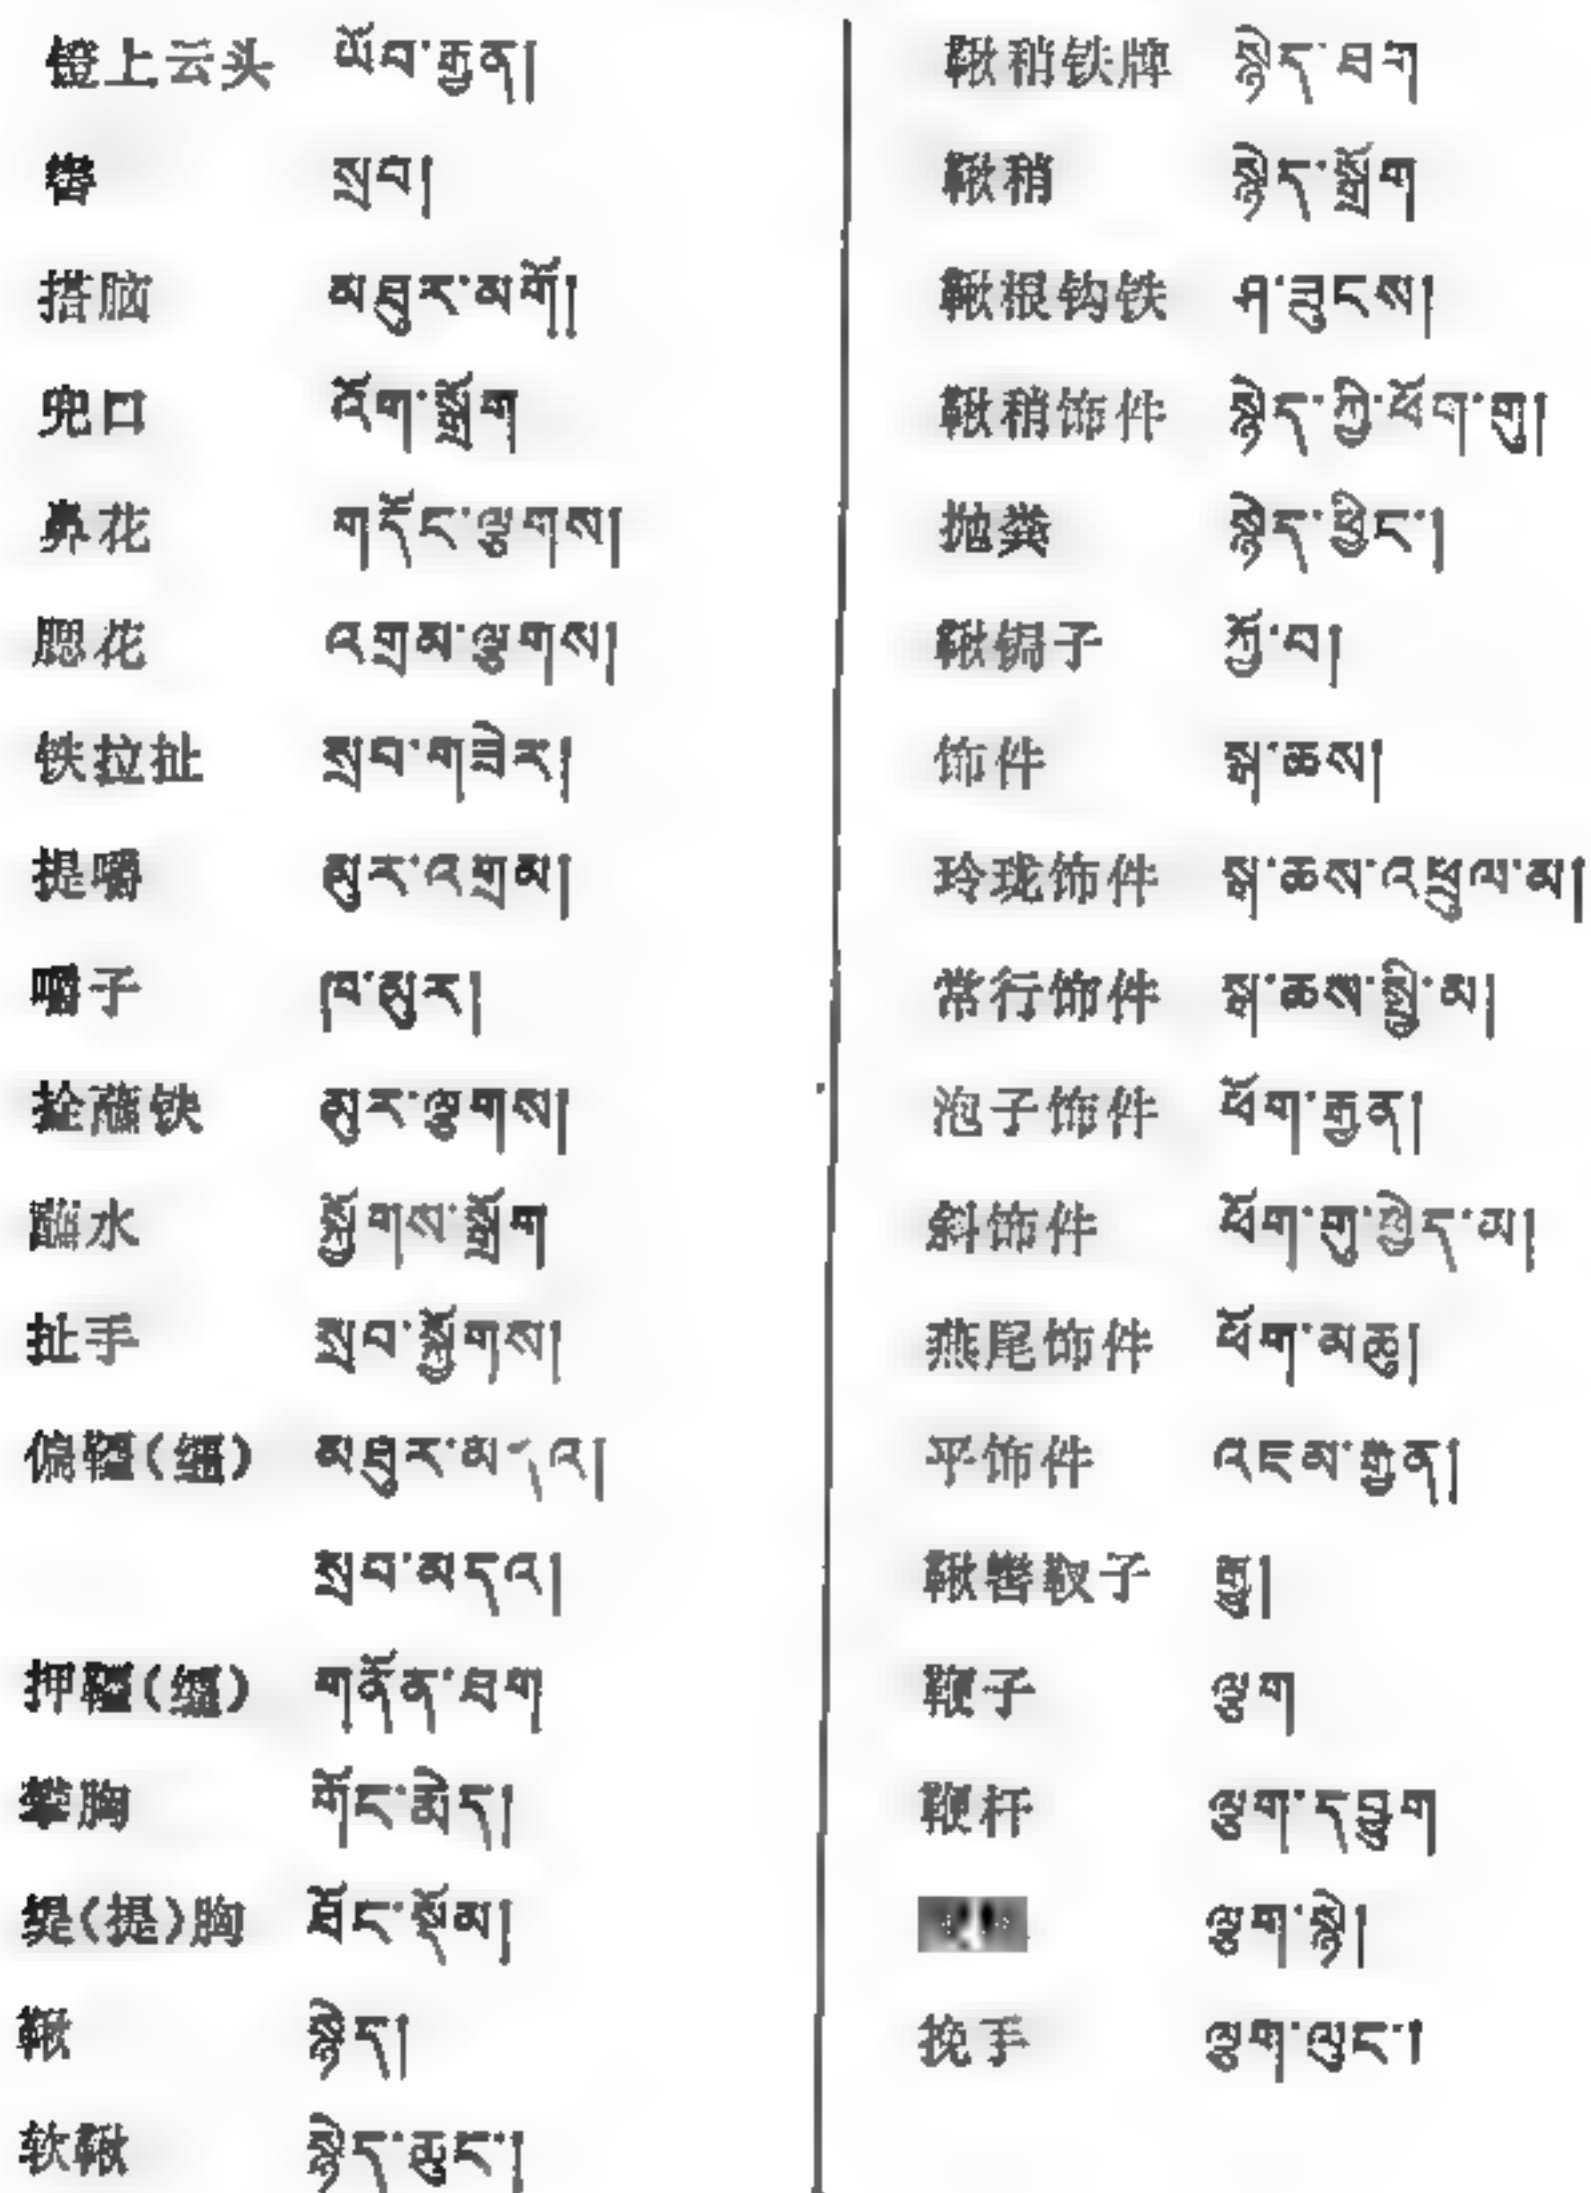 镫上云头 ཡོབ་རྒྱན།
辔 སྲབ།
搭脑 མཐུར་མགོ།
兜口 འོག་སྒྲོག
鼻花 གདོང་ལྕགས།
腮花 འགྲམ་ལྕགས།
铁拉扯 སྲབ་གཟེར།
提嚼 མུར་འགྲམ།
嚼子 ཁ་མུར།
拴蘸铁 མུར་ལྕགས།
蘸水 སྐྱོགས་སྒྲོག
扯手 སྲབ་སྐྱོགས།
偏缰(缰) མཐུར་མ འ།
སྲབ་མདའ།
押缰(缰) གནོན་ཐག
攀胸 གོང་མེད།
缇(提)胸 ཐོང་སྡོམ།
鞦 སྨེད།
软鞦 སྨེད་ཆུང་།
鞦稍铁牌 སྨེད་ཐག
鞦稍 སྨེད་སྒྲོག
鞦根钩铁 ཤ་ཟུངས།
鞦稍饰件 སྨེད་ཀྱི་ཕོག་གུ།
抛粪 སྨེད་ཕྱེང་།
鞦锔子 ཀྱོ་བ།
饰件 སྒ་ཆས།
玲珑饰件 སྒ་ཆས་འཕྲུལ་མ།
常行饰件 སྒ་ཆས་སྤྱི་མ།
泡子饰件 ཕོག་རྒྱན།
斜饰件 ཕོག་གུ་ཕྱེད་མ།
燕尾饰件 ཕོག་མཆུ།
平饰件 འཇམ་རྒྱན།
鞦辔靫子 ཆུ།
鞭子 ལྕག
鞭杆 ལྕག་དབྱུག
ལྕག་སྣེ།
挽手 ལྕག་ལུང་།